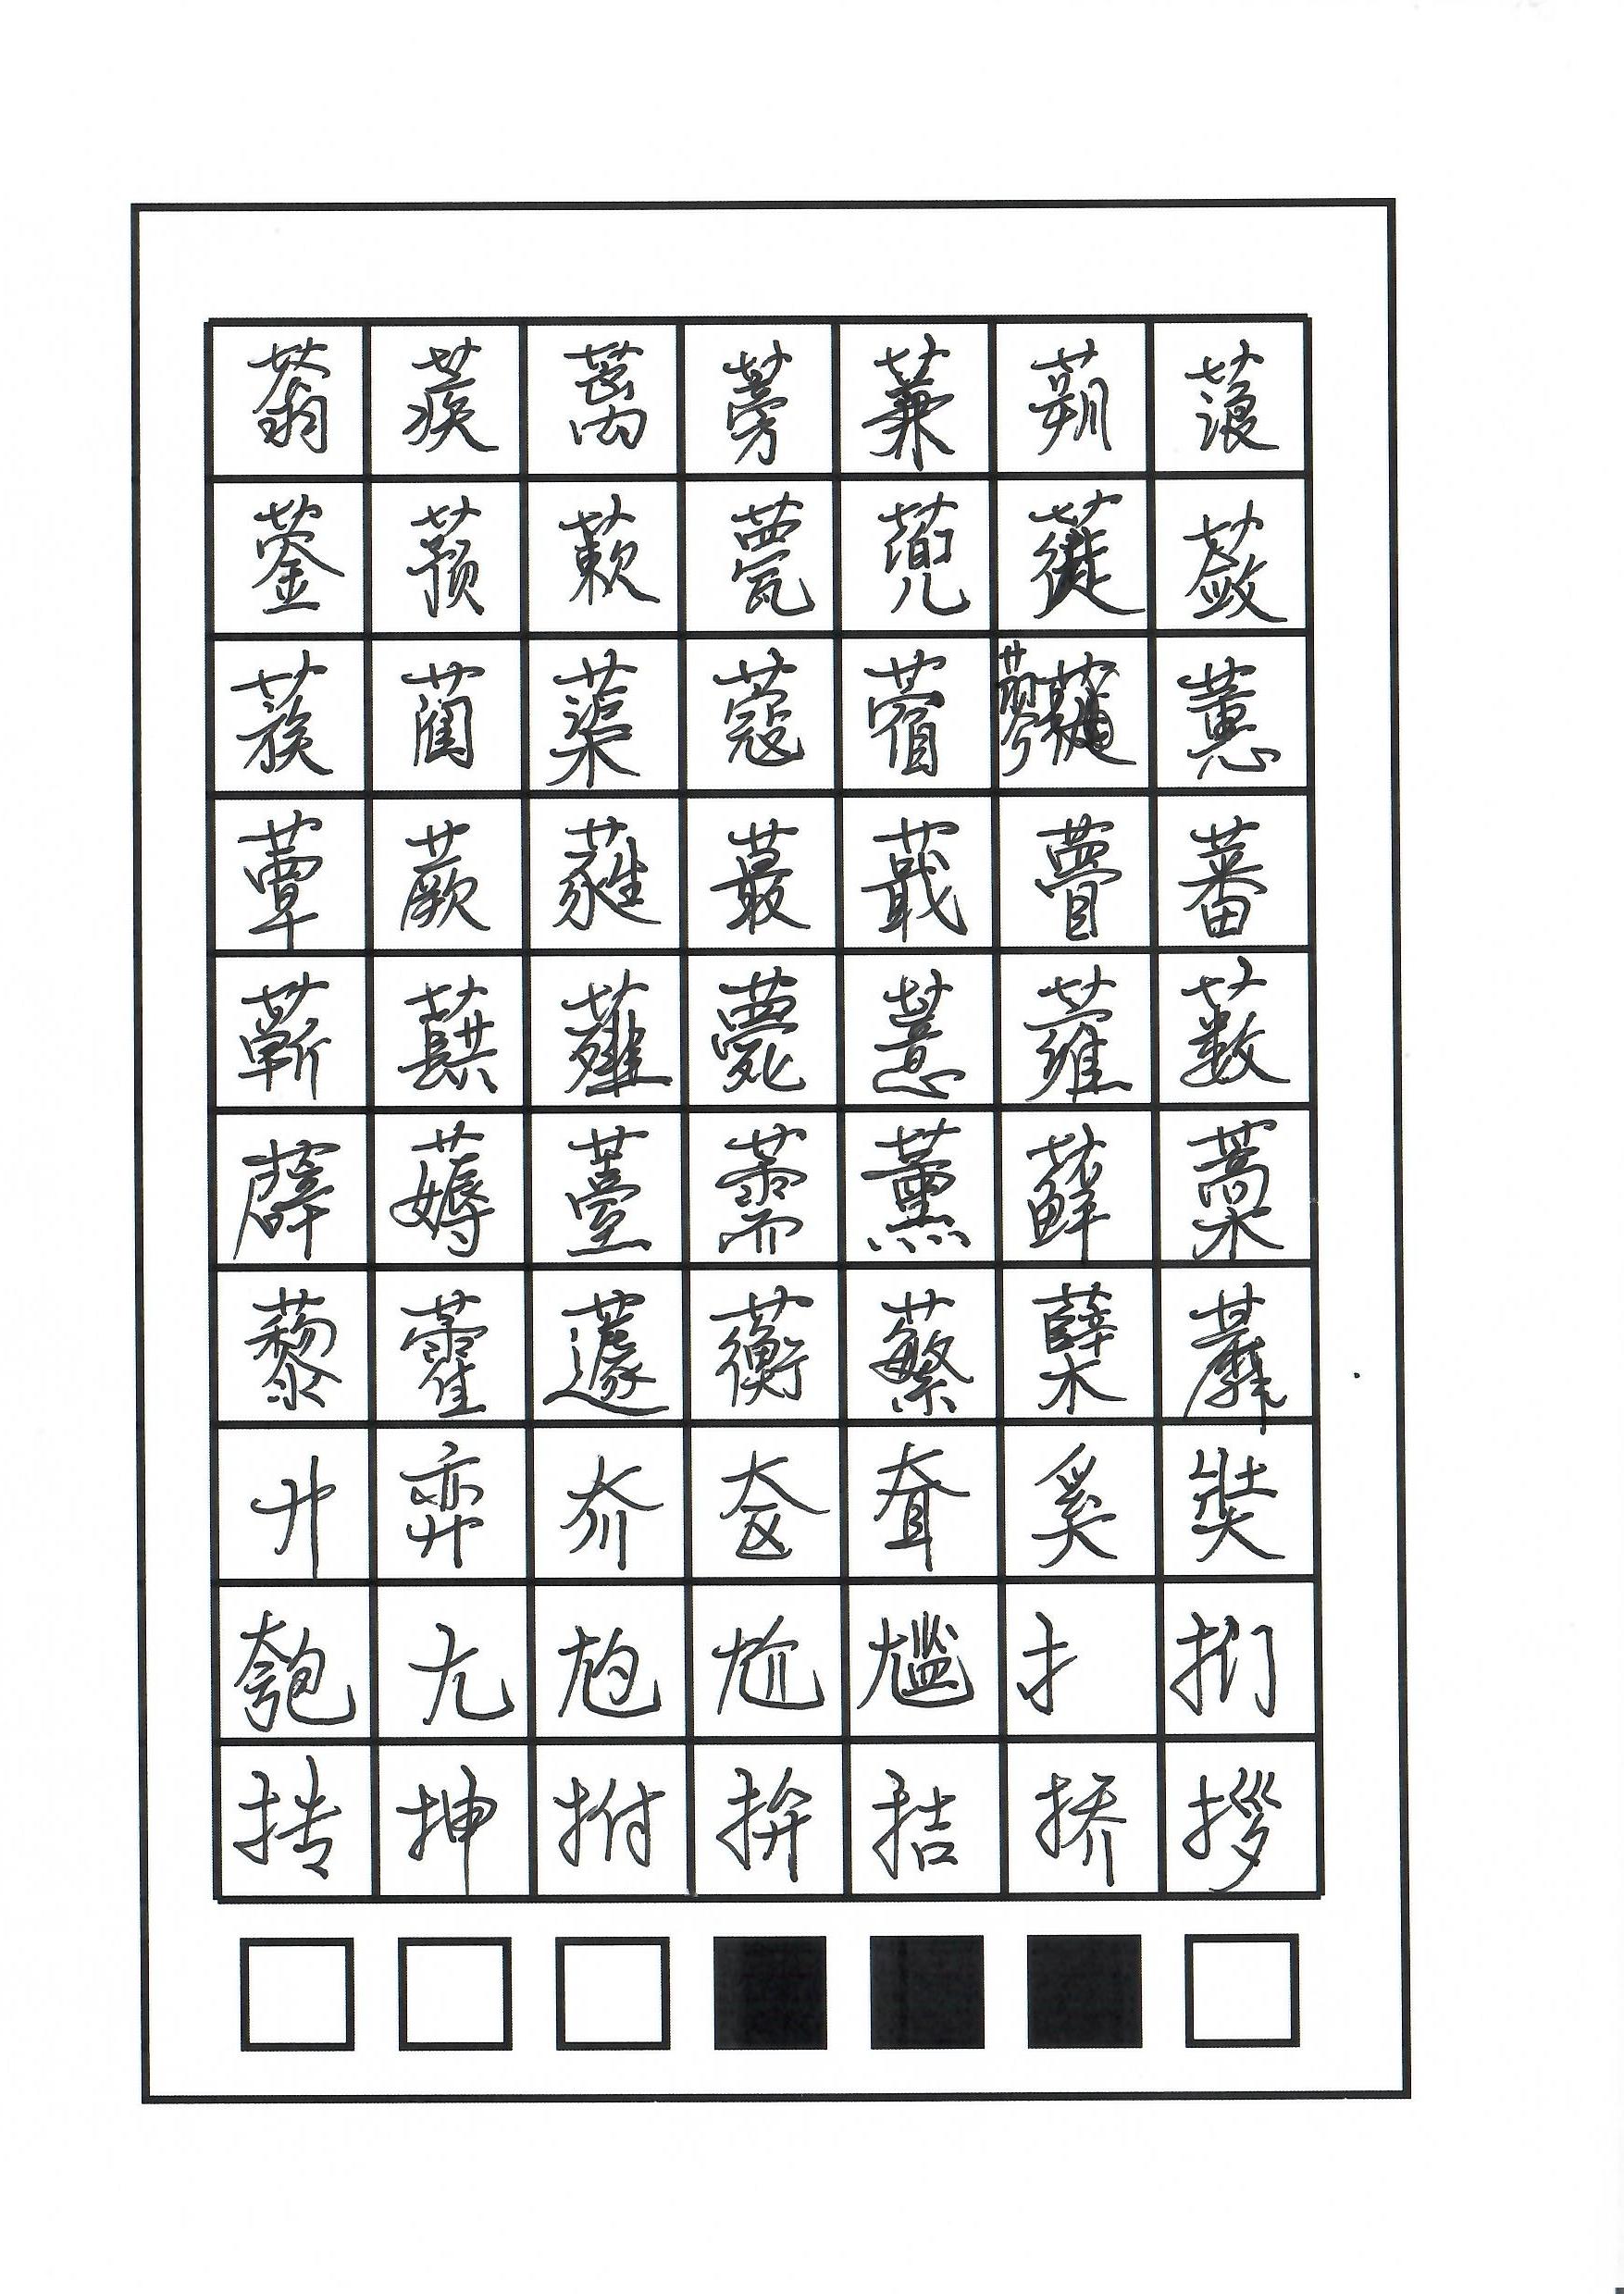 蓊蒺蓠蒡蒹蒴蒗
蓥蓣蔌甍蔸蓰蔹
蔟蔺蕖蔻蓿蓼蕙
蕈蕨蕤蕞蕺瞢蕃
蕲蕻薤薨薏蕹薮
薜薅薹薷薰藓藁
藜藿蘧蘅蘩蘖蘼
廾弈夼奁耷奚奘
匏尢尥尬尴扌扪
抟抻拊拚拮挢拶